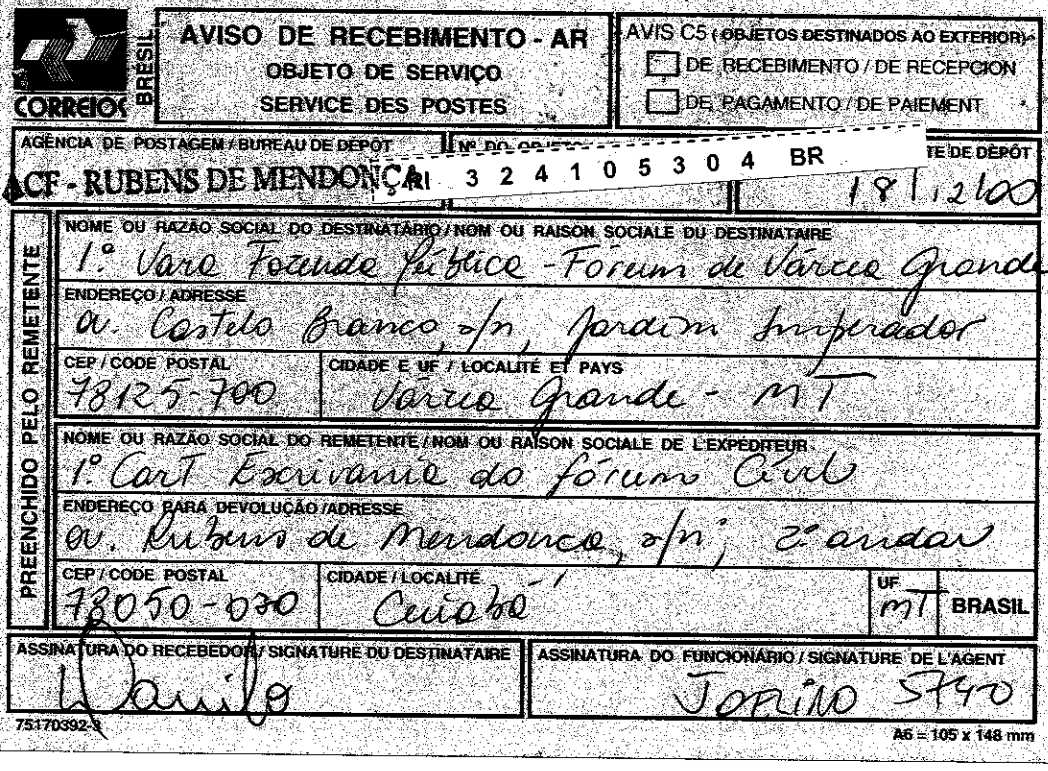 CORREIOS
BRÉSIL
AVISO DE RECEBIMENTO - AR
OBJETO DE SERVIÇO
SERVICE DES POSTES
AVIS C5 (OBJETOS DESTINADOS AO EXTERIOR)
DE RECEBIMENTO / DE RÉCEPCION
DE PAGAMENTO / DE PAIEMENT
AGÊNCIA DE POSTAGEM / BUREAU DE DÉPÔT
ACF - RUBENS DE MENDONÇA
Nº DO OBJETO
324105304 BR
TE DE DÉPÔT
18/12/00
PREENCHIDO PELO REMETENTE
NOME OU RAZÃO SOCIAL DO DESTINATÁRIO / NOM OU RAISON SOCIALE DU DESTINATAIRE
1ª Vara Fazenda Pública - Fórum de Várzea Grande
ENDEREÇO / ADRESSE
Av. Castelo Branco, s/n, Jardim Imperador
CEP / CODE POSTAL
78125-700
CIDADE E UF / LOCALITÉ ET PAYS
Várzea Grande - MT
NOME OU RAZÃO SOCIAL DO REMETENTE / NOM OU RAISON SOCIALE DE L'EXPÉDITEUR
1º Cart Escrivania do fórum Cível
ENDEREÇO PARA DEVOLUÇÃO / ADRESSE
Av. Rubens de Mendonça, s/nº, 2º andar
CEP / CODE POSTAL
78050-030
CIDADE / LOCALITÉ
Cuiabá
UF
MT
BRASIL
ASSINATURA DO RECEBEDOR / SIGNATURE DU DESTINATAIRE
Danilo
ASSINATURA DO FUNCIONÁRIO / SIGNATURE DE L'AGENT
75170392-3
A6 = 105 x 148 mm